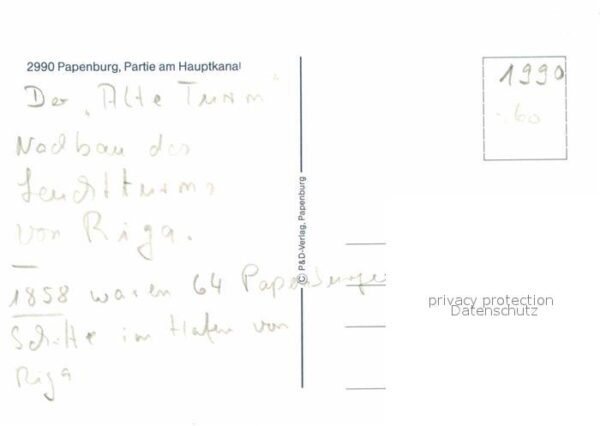 2990 Papenburg, Partie am Hauptkanal
Der „Alte Turm“
Nachbau des
Leuchtturms
von Riga.
1858 waren 64 Papenburger
Schiffe im Hafen von
Riga
© P&D-Verlag, Papenburg
1990
-.60
privacy protection
Datenschutz